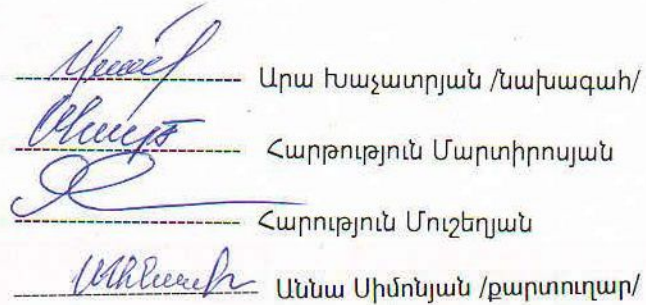 Արա Խաչատրյան /նախագահ/
Հարթություն Մարտիրոսյան
Հարություն Մուշեղյան
Աննա Սիմոնյան /քարտուղար/